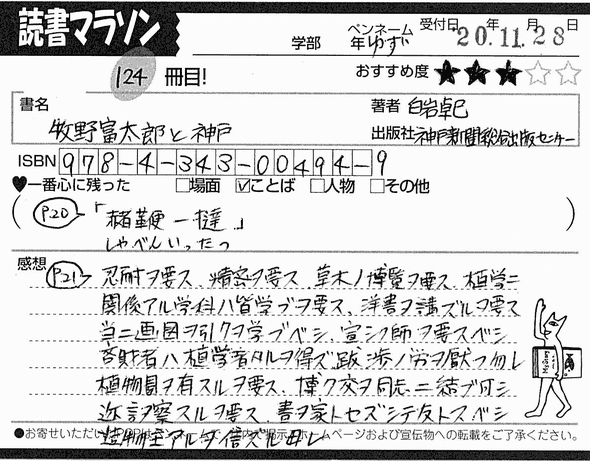 読書マラソン
学部 年 ペンネーム ゆず 受付日 20年 11月 28日
124 冊目! おすすめ度 ★★★☆☆
書名 牧野富太郎と神戸
著者 白岩卓巳
出版社 神戸新聞総合出版センター
ISBN 978-4-343-00494-9
♥一番心に残った □場面 ☑ことば □人物 □その他
(P.20)「赭鞭一撻」
しゃべんいったつ
感想 P.21 忍耐ヲ要ス、精密ヲ要ス 草木ノ博覧ヲ要ス、植学ニ
関係アル学科ハ皆学ブヲ要ス、洋書ヲ講ズルヲ要ス
当ニ画図ヲ引クヲ学ブベシ、宜シク師ヲ要スベシ
吝財者ハ植学者タルヲ得ズ、跋渉ノ労ヲ厭フ勿レ
植物園ヲ有スルヲ要ス、博ク交ヲ同志ニ結ブ可シ
邇言ヲ察スルヲ要ス、書ヲ家トセズシテ友トスベシ
造物主アルヲ信ズル毋レ
●お寄せいただい ホームページおよび宣伝物への転載をご了承ください。